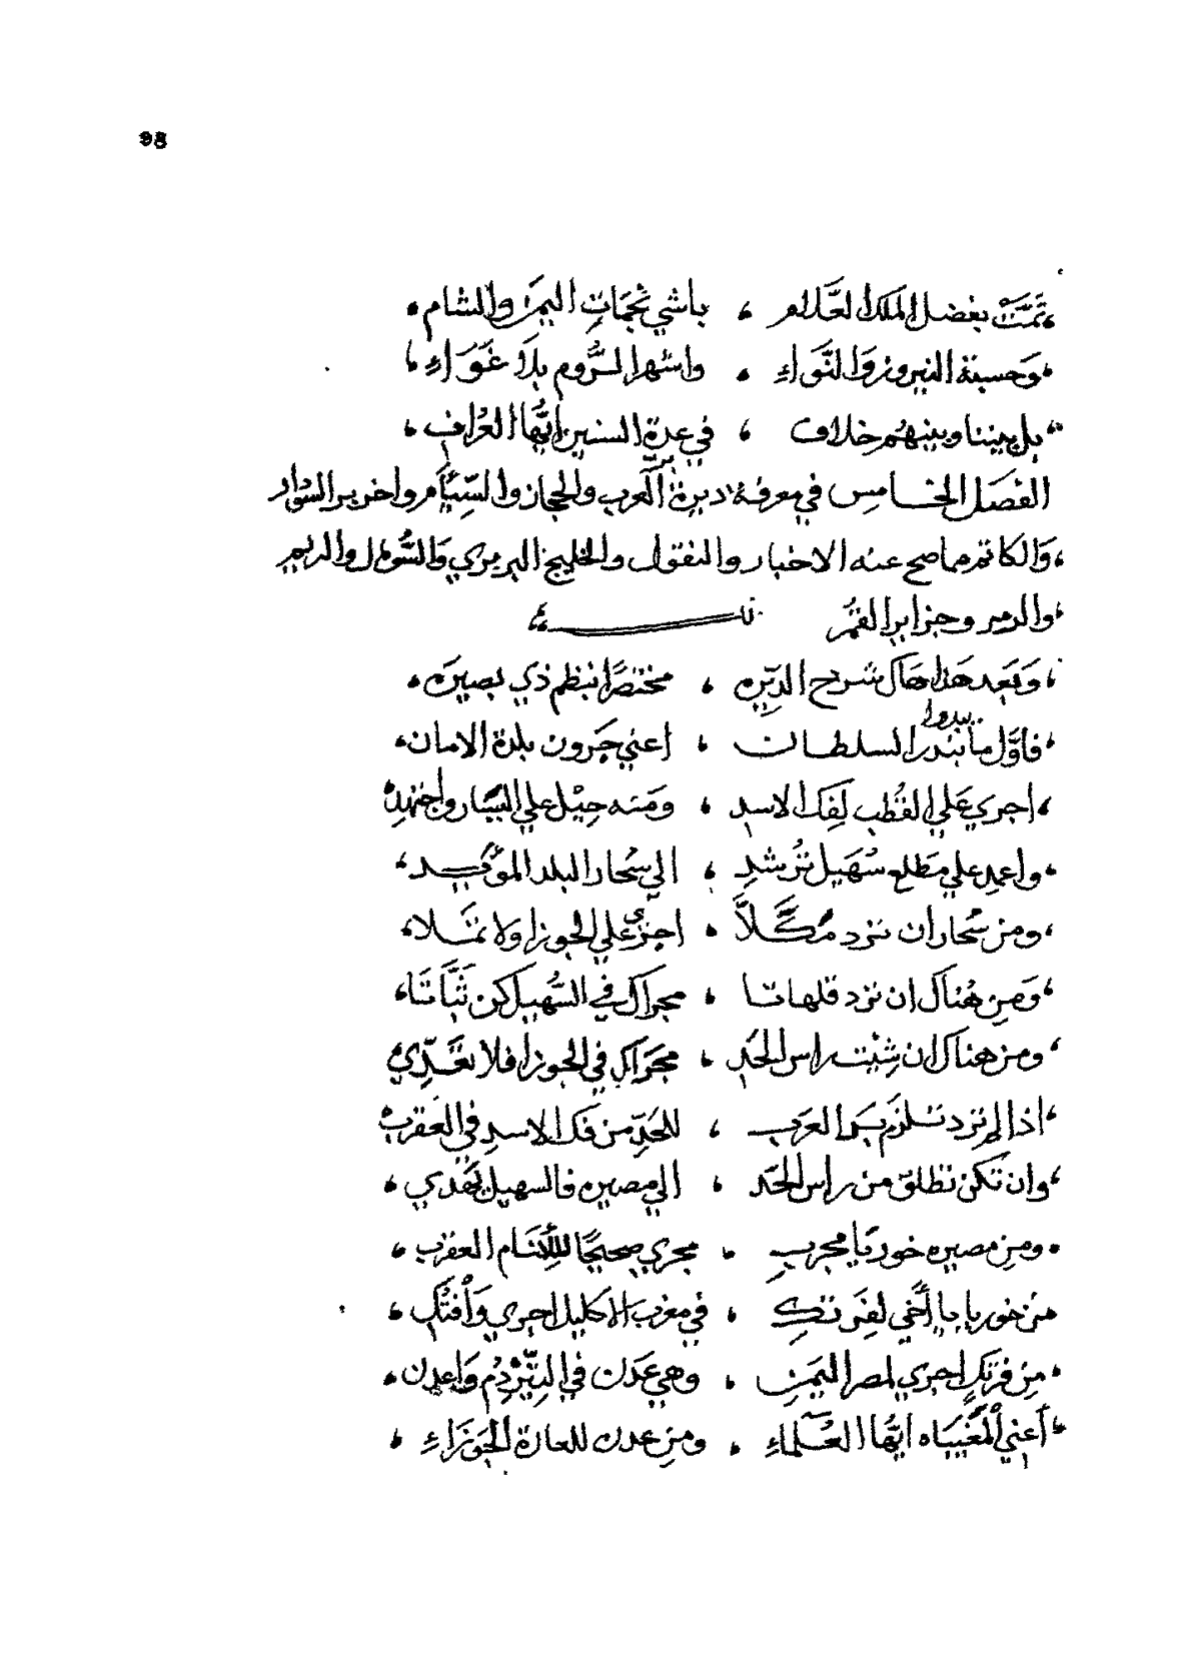 98
تمَّت بفضل الملك العَلَّام ، باشي نجمات اليمن والشام ،
وحسبة النيروز والنَّواءِ ، واشهر الرُّوم بلا عَوَراءِ ،
بل بيننا وبينهم خلاف ، في عدة السنين ايُّها العُراف ،
الفصل الخامس في معرفة ديرة العرب والحجاز والسِّيَام واخر بر السودان
والكاتم مما صح عنه الاخبار والنقول والخليج البربري والسُّومال والريم
والرمير وجزاير القُمُر
وَبَعد هَذا هَاك شرح الديّره ، مختصرًا بنظم ذي بصيرَه ،
يبدوا
فاوَّل ما بندر السلطان ، اعني جَرون بلدة الامان ،
اجري عَلي القُطب لِفَك الاسدِ ، وَمنه حِيْل علي اليَسَار واجتهدِ
واعمد علي مَطلع سُهَيل تُرشدِ ، الي سُحار البلد المؤكيد ،
ومن سُحار ان ترد مُكَلَّا ، اجري علي الجوزا ولا تملا ،
وَمِن هُناك ان ترد قلهاتا ، مجراك في السُّهيل كن ثَبَّاتَا ،
ومن هناك ان شِئت راس الحَدِ ، مجرَاك في الجوزا فلا تعَدِّي
اذا لم ترد تلزم بَر العَرب ، للحَدِّ من فك الاسدِ في العَقربِ
وان تكن تطلق من راس الحَد ، الي مصيره فالسهيل يَهْدي ،
ومِن مصيره خوريا مجربِ ، مجري صحيحًا للأنَام العقرب ،
من خوريا يا اَخي لفَرتكِ ، في مغرب الاكليل اجري وَاْفتُك ،
مِن فرتك اجري لمصر اليَمَن ، وهي عَدَن في التِّيْرُدُم وَاعِدن ،
اَعني اْلمُغَيباه ايُّها العُلماءِ ، ومن عدن للعارة الجَوزَاءِ ،